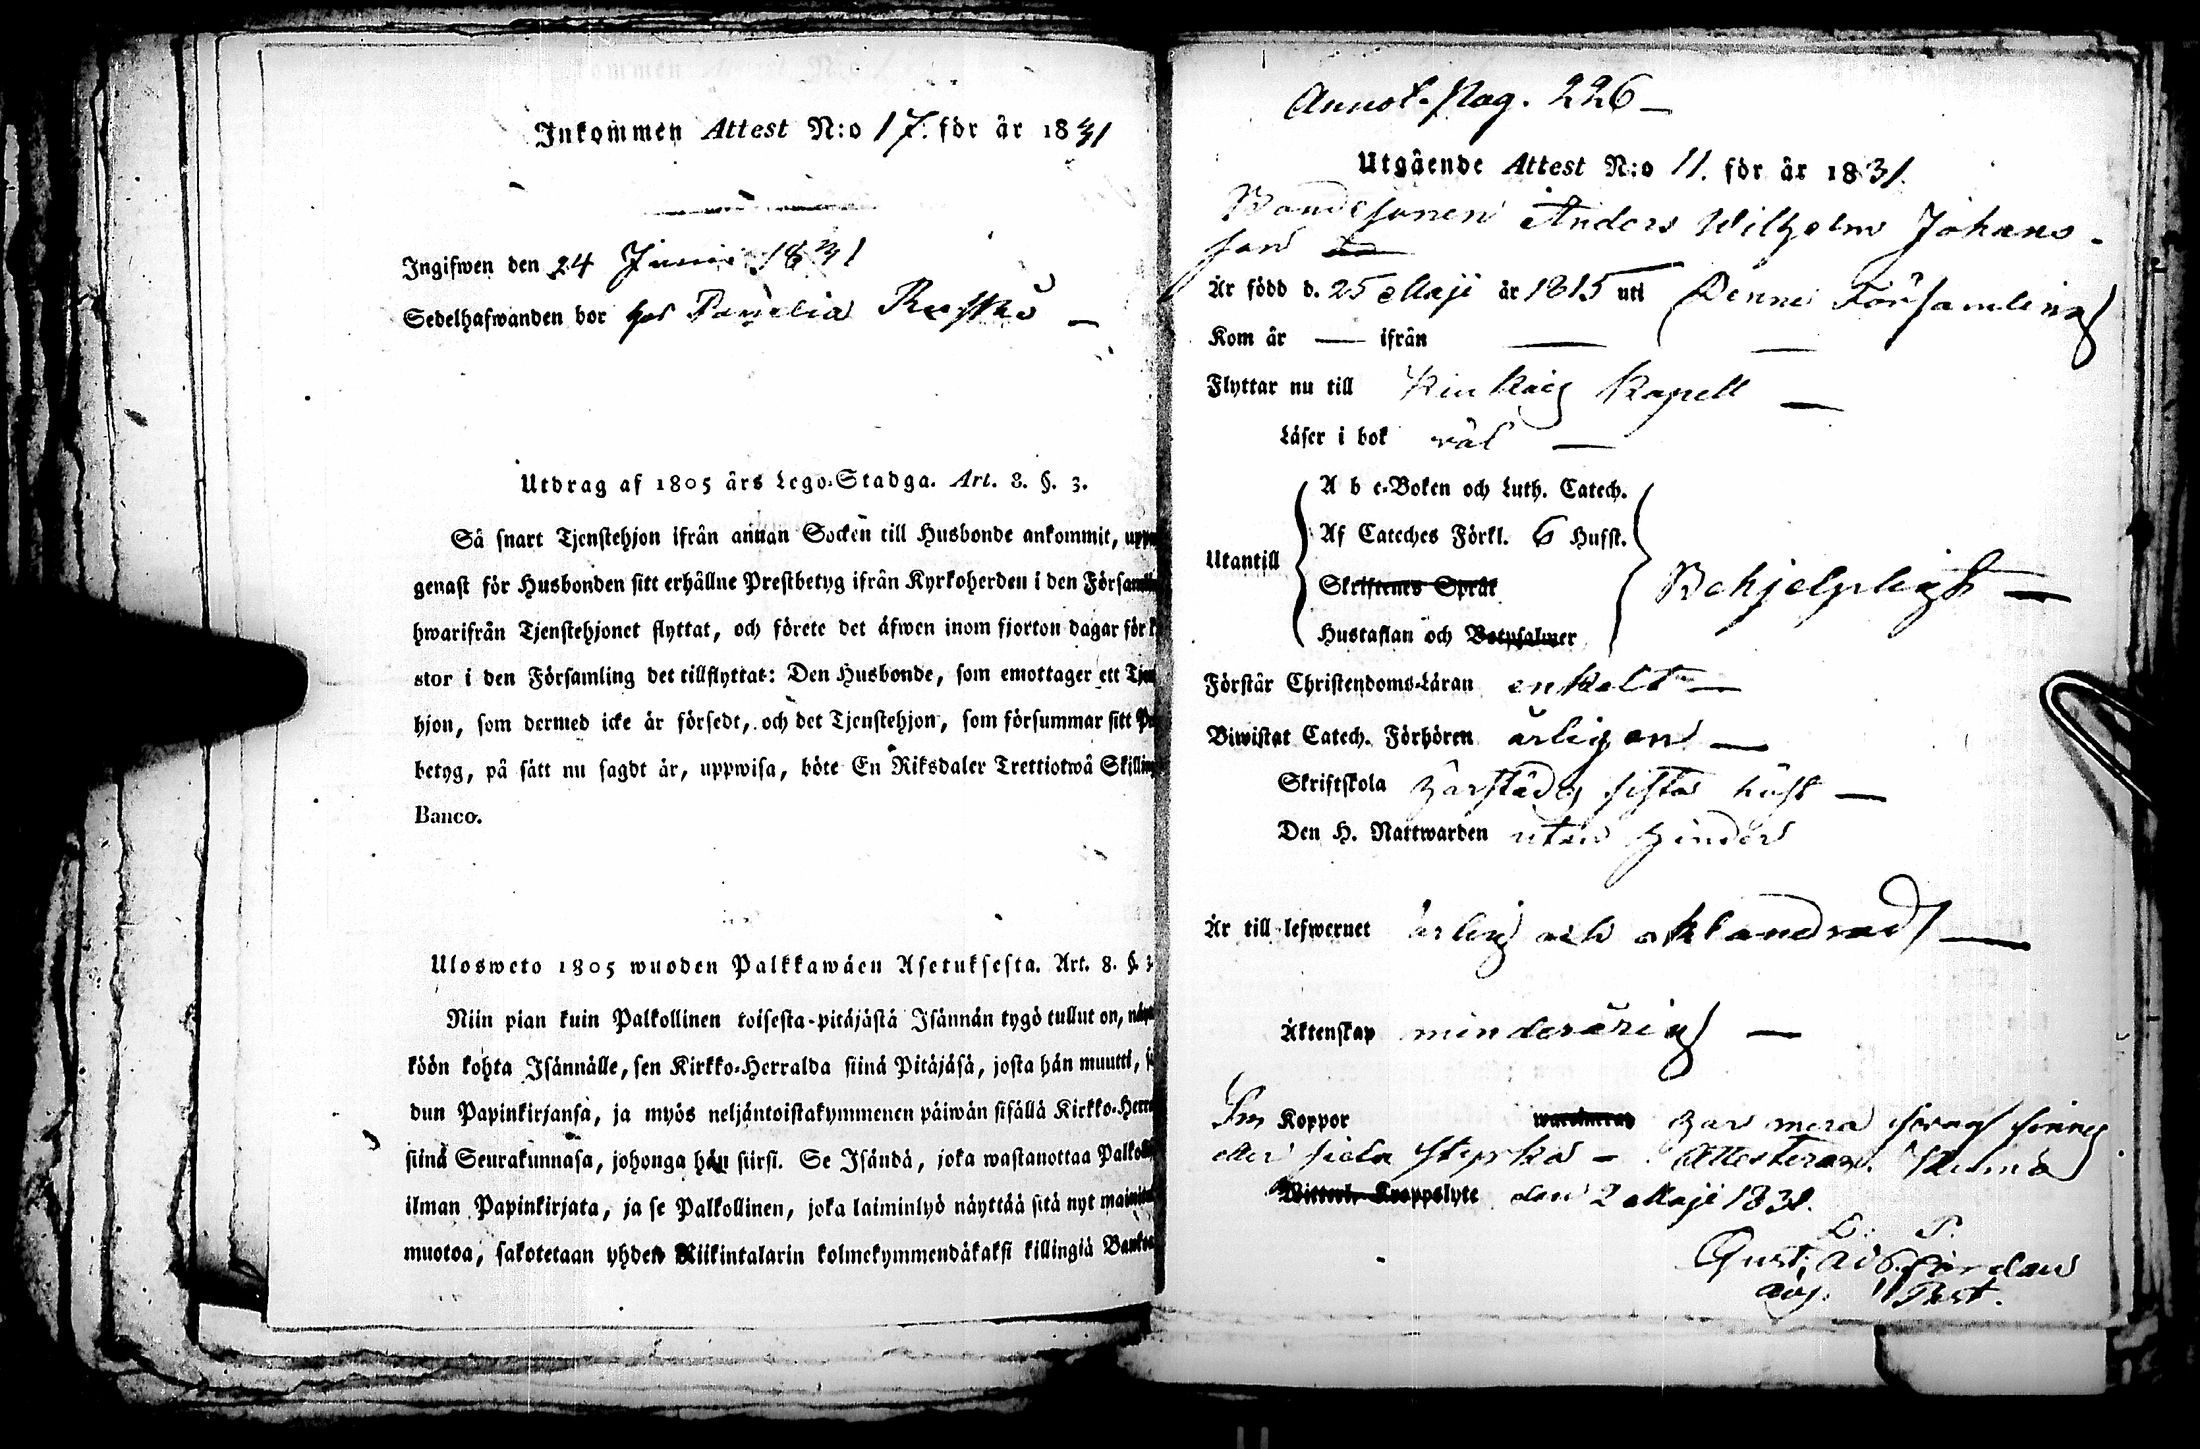 Inkommen Attest N:o 17. för år 1831
Ingifwen den 24 Junii 1831
Sedelhafwanden bor hos
Utdrag af 1805 års Lego-Stadga. Art. 8. §. 3.
Så snart Tjenstehjon ifrån annan Socken till Husbonde ankommit,
genast för Husbonden sitt erhållne Prestbetyg ifrån Kyrkoherden i den
hwarifrån Tjenstehjonet flyttat, och förete det äfwen inom fjorton dagar för
stor i den Församling det tillflyttat: Den Husbonde, som emottager ett
hjon, som dermed icke är försedt, och det Tjenstehjon, som försummar sitt
betyg, på sätt nu sagdt är, uppwisa, böte En Riksdaler Trettiotwå
Banco.
Ulosweto 1805 wuoden Palkkawäen Asetuksesta. Art. 8. §. 3
Niin pian kuin Palkollinen toisesta-pitäjästä Isännän tygö tullut on,
köön kohta Isännälle, sen Kirkko-Herralda siinä Pitäjäsä, josta hän muutti,
dun Papinkirjansa, ja myös neljäntoistakymmenen päiwän sisällä
siinä Seurakunnasa, johonga hän siirsi. Se Isändä, joka wastanottaa
ilman Papinkirjata, ja se Palkollinen, joka laiminlyö näyttää sitä nyt
muotoa, sakotetaan yhden Riikintalarin kolmekymmendäkaksi killingiä
Annot. Pag. 226 —
Utgående Attest N:o 11. för år 1831.
Bondesonen Anders Wilhelm Johans-
son
Är född d. 25 Maji år 1815 uti Denne Församling
Kom år — ifrån —
Flyttar nu till Kapell —
Läser i bok wäl —
A b c-Boken och Luth. Catech.
Af Cateches Förkl. 6 Hufst.
Utantill
Skriftenes Språk
Behjelpligt —
Hustaflan och Botpsalmer
Förstår Christendoms-Läran enkelt —
Biwistat Catech. Förhören årligen —
Skriftskola härstädes sista höst —
Den H. Nattwarden utan hinder
Är till lefwernet ärlig och oklandrad —
Äktenskap minderårig —
Koppor har mera swag sinnes
eller siäla styrka — Attesterar.
den 2 Maji 1831.